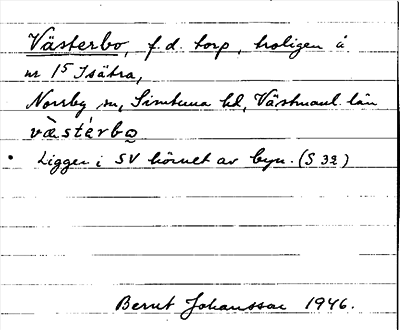 Västerbo, f.d. torp, troligen å
nr 1⁵ Isätra,
Norrby sn, Simtuna hd, Västmanl. län
væ̀sté̀rbo̲
• Ligger i SV hörnet av byn. (S 32)
Bernt Johansson 1946.